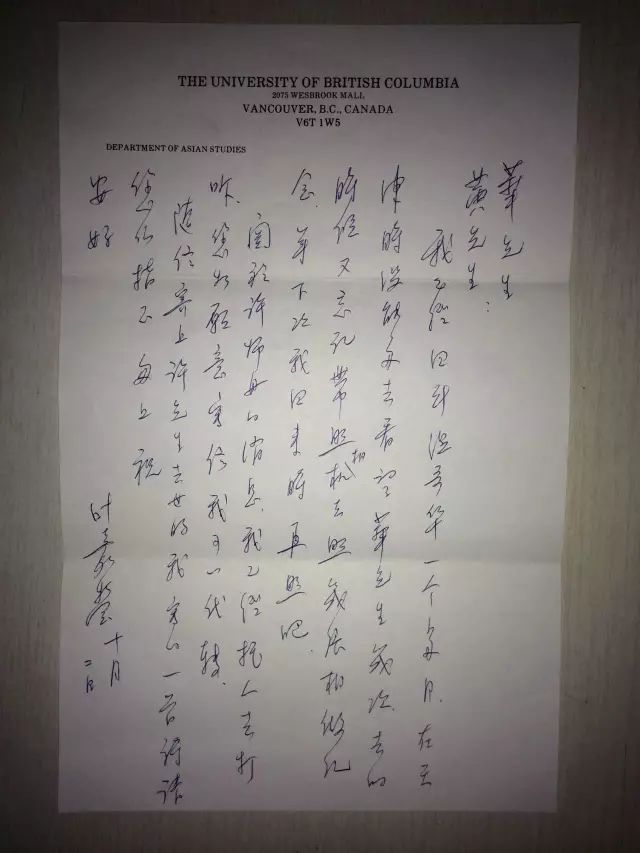 THE UNIVERSITY OF BRITISH COLUMBIA
2075 WESBROOK MALL
VANCOUVER, B.C., CANADA
V6T 1W5
DEPARTMENT OF ASIAN STUDIES
華先生
黄先生：
我已經回到溫哥华一个多月.在天
津時没能多去看望華先生幾次.去的
時候又忘记带照相机去照幾張相做纪
念.等下次我回来時再照吧.
關於許师母的消息.我已经托人去打
听.您如愿意写信我可以代转.
随信寄上许先生去世时我写的一首詩请
您们指正 匆上 祝
安好
叶嘉莹 十月
二日